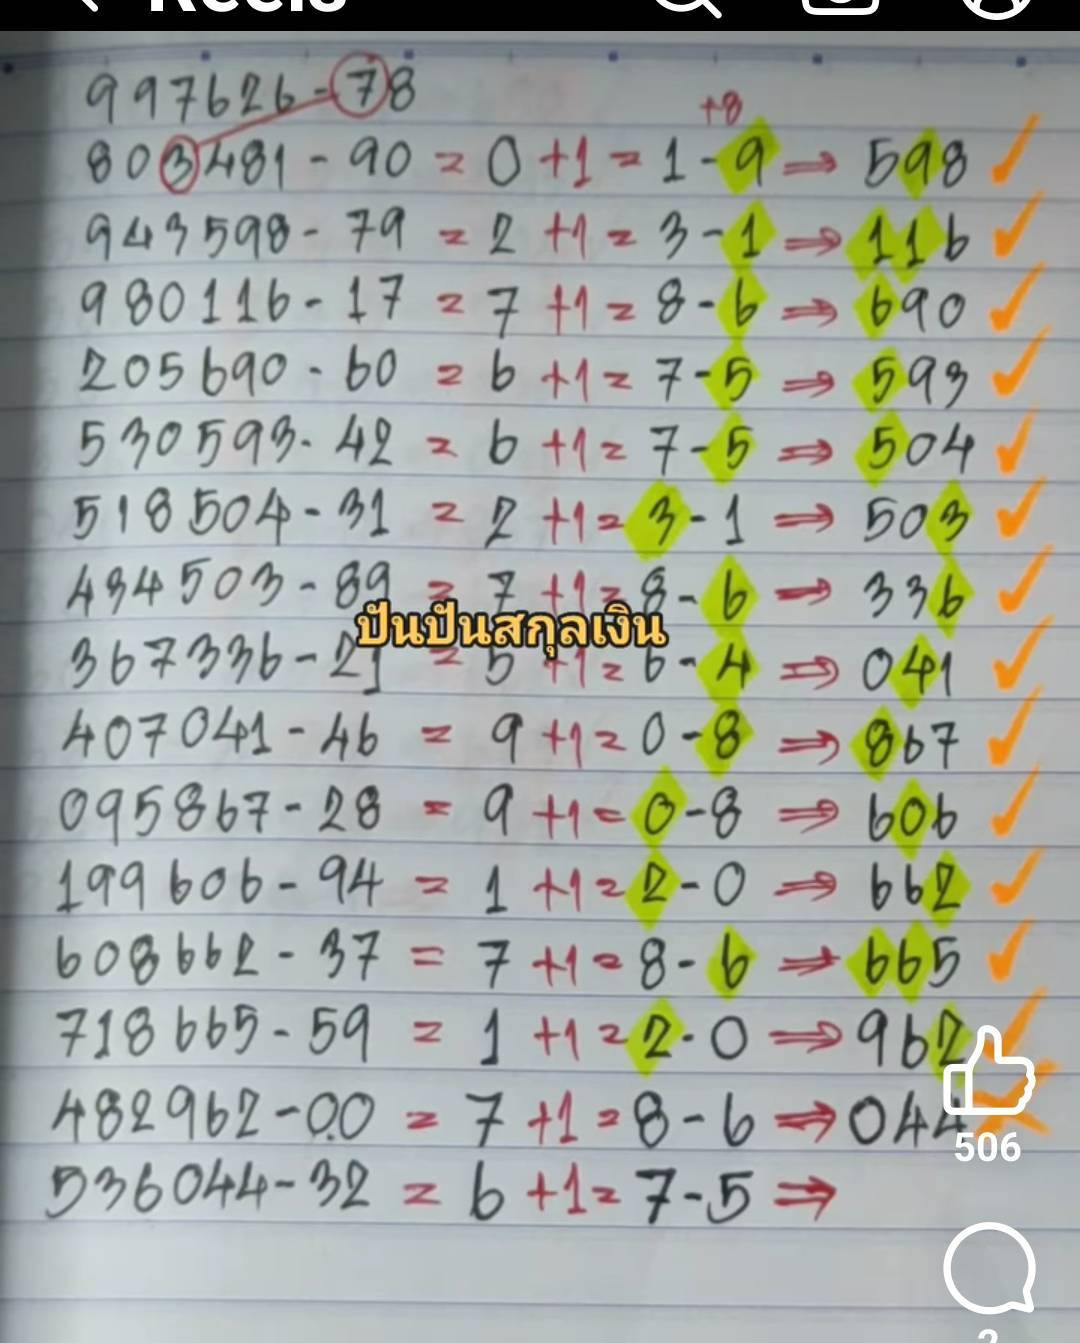 Reels
997626-78
+8
803481-90 = 0 +1 = 1-9 ⇒ 598 ✓
943598-79 = 2 +1 = 3-1 ⇒ 116 ✓
980116-17 = 7 +1 = 8-6 ⇒ 690 ✓
205690-60 = 6 +1 = 7-5 ⇒ 593 ✓
530593-42 = 6 +1 = 7-5 ⇒ 504 ✓
518504-31 = 2 +1 = 3-1 ⇒ 503 ✓
434503-89 = 7 +1 = 8-6 ⇒ 336 ✓
ปันปันสกุลเงิน
367336-21 = 5 +1 = 6-4 ⇒ 041 ✓
407041-46 = 9 +1 = 0-8 ⇒ 867 ✓
095867-28 = 9 +1 = 0-8 ⇒ 606 ✓
199606-94 = 1 +1 = 2-0 ⇒ 662 ✓
608662-37 = 7 +1 = 8-6 ⇒ 665 ✓
718665-59 = 1 +1 = 2-0 ⇒ 962 ✓
482962-00 = 7 +1 = 8-6 ⇒ 044 ✗
506
536044-32 = 6 +1 = 7-5 ⇒